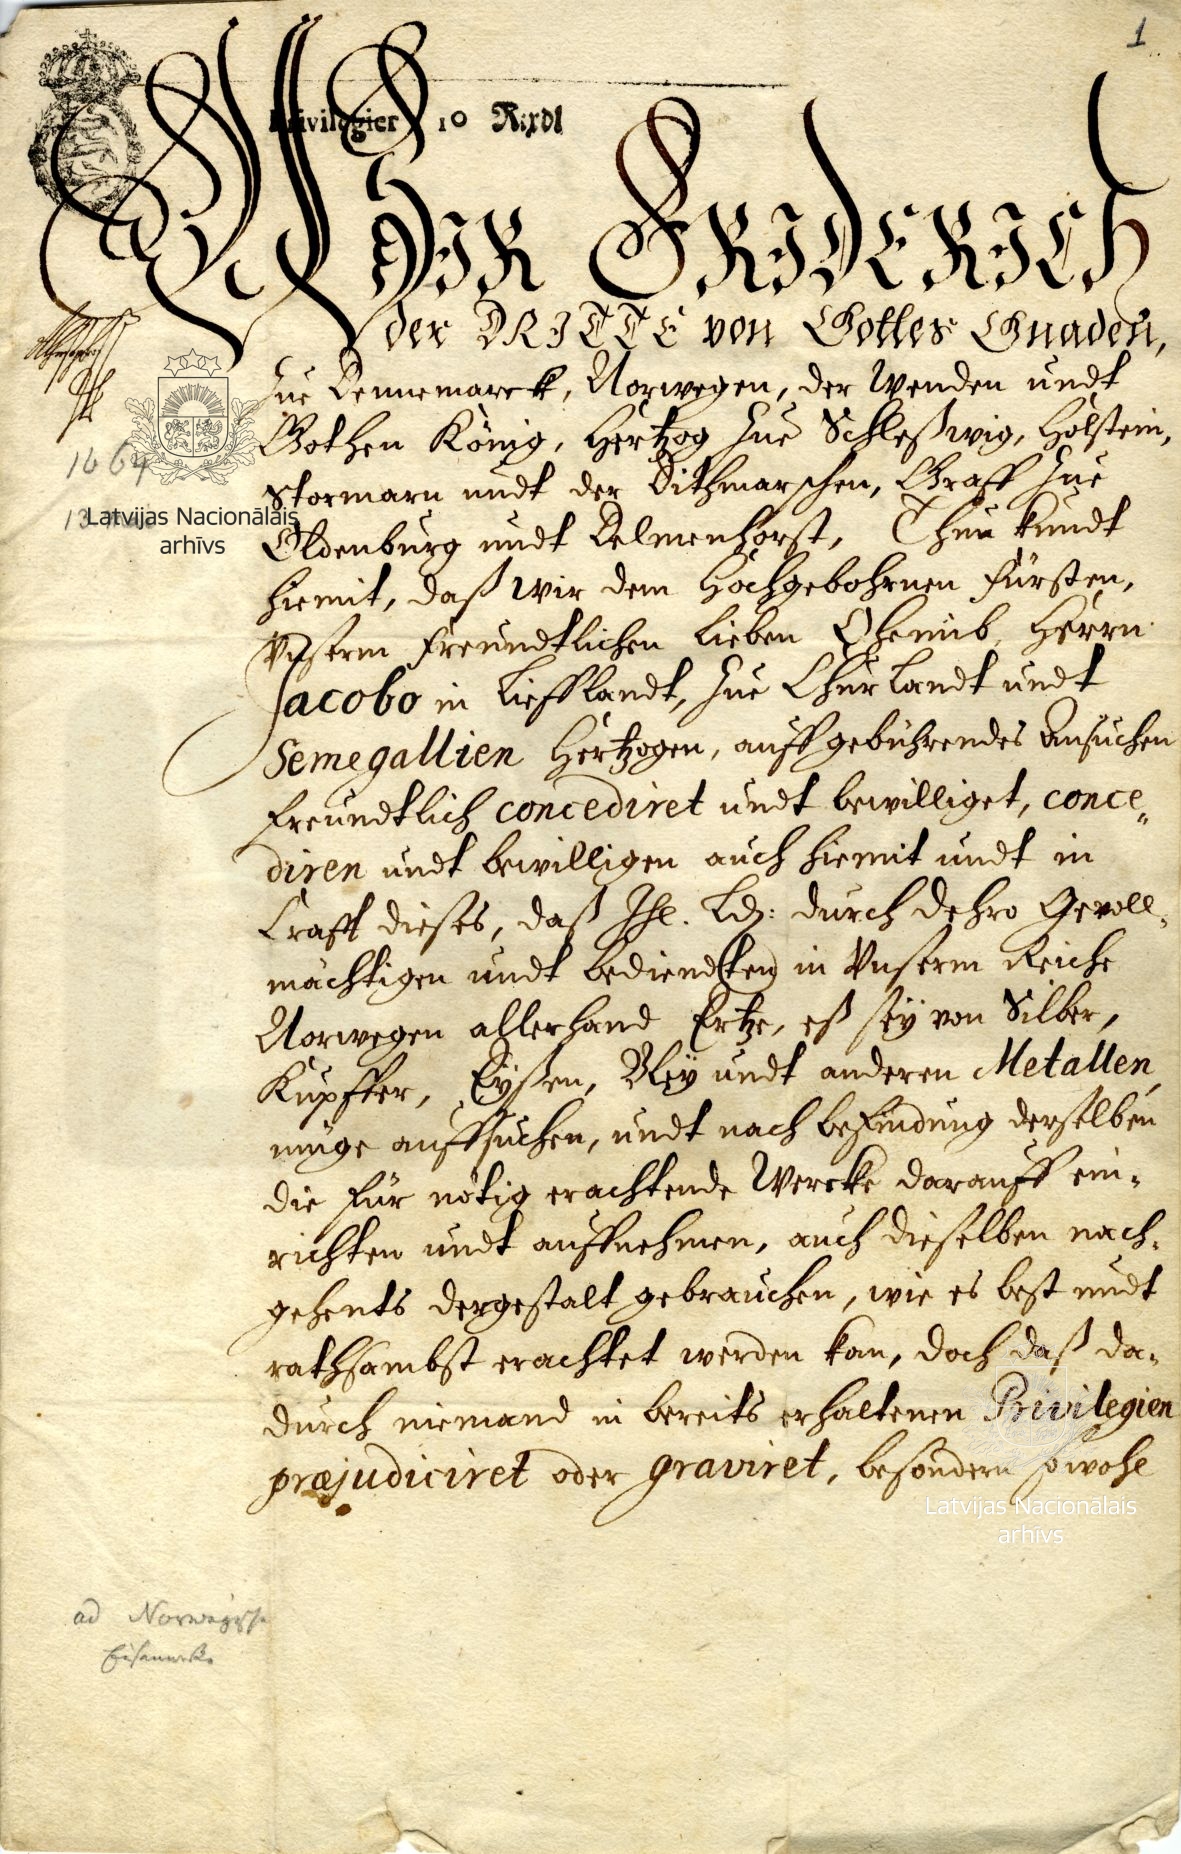 1
Privilegier 10 Rixdl
WIR FRIDERICH
der DRITTE von Gottes Gnaden,
zue Dennemarck, Norwegen, der Wenden undt
Gothen König, Hertzog zue Schleßwig, Holstein,
Stormarn undt der Dithmarschen, Graff zue
Oldenburg undt Delmenhorst, Thun kundt
hiemit, daß wir dem Hochgebohrnen Fürsten,
Vnserm freundtlichen lieben Oheimb, Herrn
Jacobo in Liefflandt, zue Churlandt undt
Semegallien Hertzogen, auff gebührendes Ansuchen
freundtlich concediret undt bewilliget, conce„
diren undt bewilligen auch hiemit undt in
Crafft dieses, daß Ihl. Ld: durch dehro Gevoll„
mächtigen undt bediend(ten) in Vnserm Reiche
Norwegen allerhand Ertze, eß seÿ von Silber,
Kupffer, Eÿßen, Bleÿ undt anderen Metallen,
müge auffsuchen, undt nach befindung derselben
die für nötig erachtende Wercke darauff ein„
richten undt auffnehmen, auch dieselben nach„
gehents dergestalt gebrauchen, wie es best undt
rathsambst erachtet werden kan, doch daß da„
durch niemand in bereits erhaltenen Privilegien
præjudiciret oder graviret, besondern sowohl
1664
13
Latvijas Nacionālais
arhīvs
Latvijas Nacionālais
arhīvs
ad Norwegische
Eisenwerke